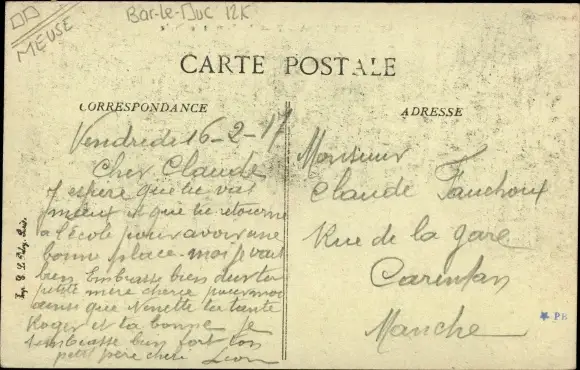 MEUSE
Bar-le-Duc 12K
CARTE POSTALE
CORRESPONDANCE
ADRESSE
Vendredi 16-2-17
Cher Claude
J espère que tu vas
mieux et que tu retourne
a l'école pour avoir une
bonne place moi je vais
bien Embrasse bien
petite mère cherie pour moi
ainsi que Ninette ta tante
Roger et ta bonne je
t'embrasse bien fort ton
petit père cheri Léon
Monsieur
Claude Fauchoux
Rue de la gare
Carentan
Manche
PB